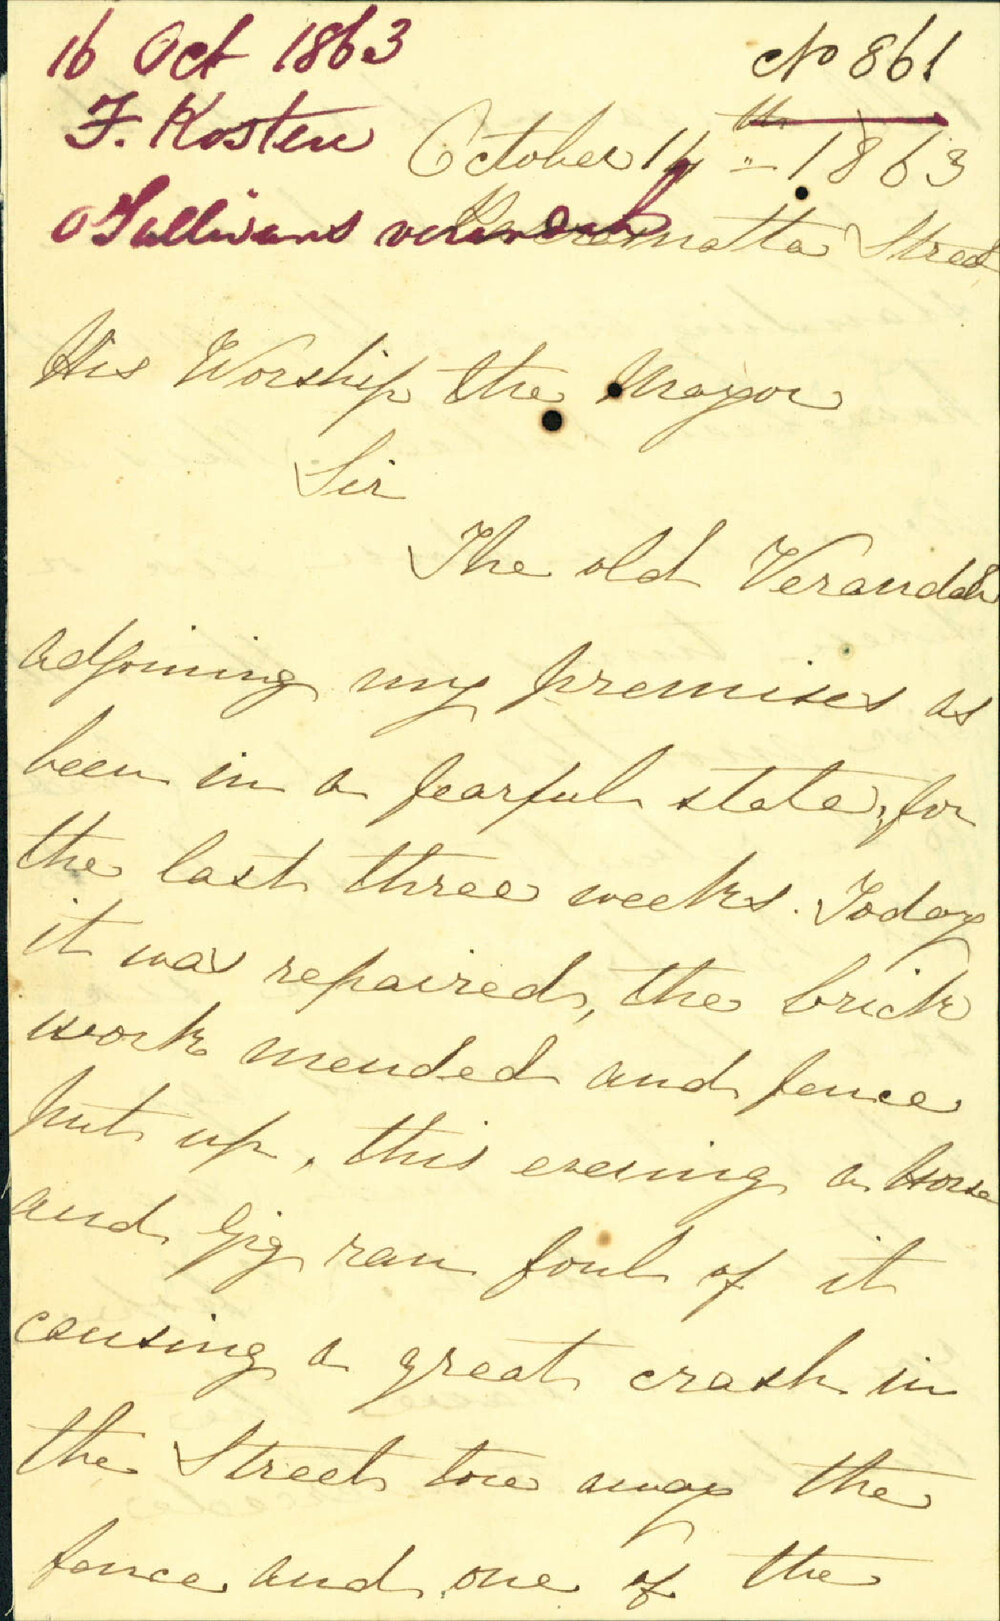 16 Oct 1863
No 861
F. Kosten
October 14th - 1863
O'Sullivans verandah
Parramatta Street
His Worship the Mayor
Sir
The old Verandah
adjoining my premises as
been in a fearful state, for
the last three weeks. Today
it was repaired, the brick
work mended and fence
put up, this evening a Horse
and Gig ran foul of it
causing a great crash in
the Street tore away the
fence and one of the